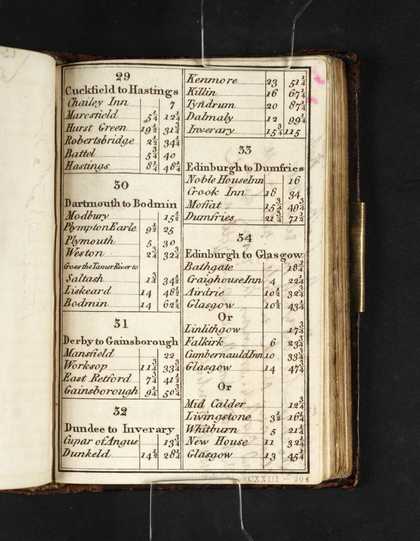 29
Cuckfield to Hastings
Chailey Inn 7
Maresfield 5¼ 12¼
Hurst Green 19½ 31¾
Robertsbridge 2½ 34¼
Battel 5¾ 40
Hastings 8¼ 48¼
30
Dartmouth to Bodmin
Modbury 15½
Plympton Earle 9½ 25
Plymouth 5 30
Weston 2¾ 32¾
Cross the Tamer River to
Saltash 1¾ 34½
Liskeard 14 48½
Bodmin 14 62½
31
Derby to Gainsborough
Mansfield 22
Worksop 11¾ 33¾
East Retford 7¾ 41½
Gainsborough 9¼ 50¾
32
Dundee to Inverary
Cupar of Angus 13¾
Dunkeld 14½ 28¼
Kenmore 23 51¼
Killin 16 67¼
Tyndrum 20 87¼
Dalmaly 12 99¼
Inverary 15¾ 115
33
Edinburgh to Dumfries
Noble House Inn 16
Crook Inn 18 34
Moffat 15¾ 49¾
Dumfries 21¾ 71½
34
Edinburgh to Glasgow
Bathgate 18¼
Craighouse Inn 4 22¼
Airdrie 10½ 32¾
Glasgow 10¾ 43½
Or
Linlithgow 17¾
Falkirk 6 23¾
Cumbernauld Inn 10 33¾
Glasgow 14 47¾
Or
Mid Calder 12¾
Livingstone 3½ 16¼
Whitburn 5 21¼
New House 11 32¼
Glasgow 13 45¼